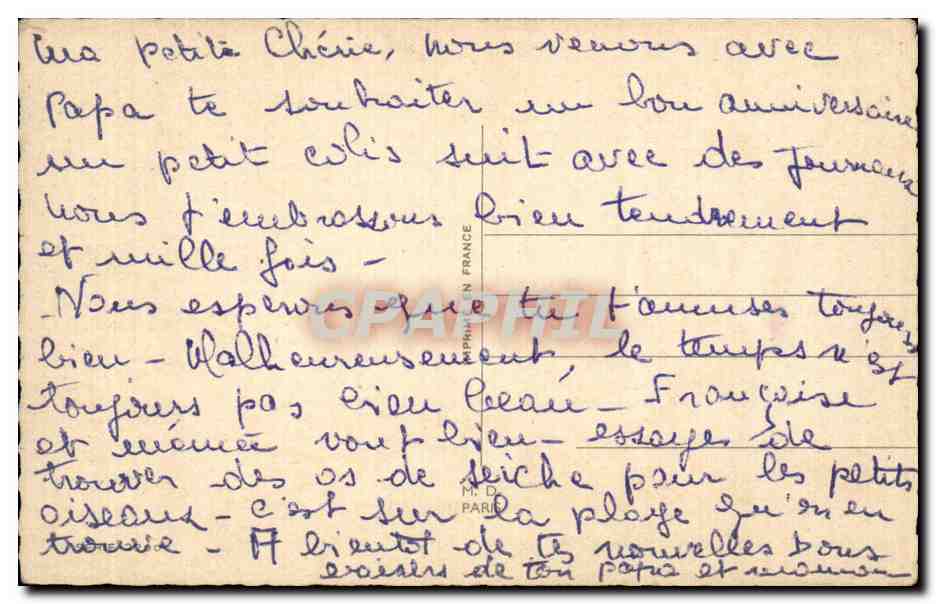 Ma petite Chérie, nous venons avec
Papa te souhaiter un bon anniversaire
un petit colis suit avec des journaux
nous t'embrassons bien tendrement
et mille fois -
- Nous esperons que tu t'amuses toujours
bien - Malheureusement, le temps n'est
toujours pas bien beau - Françoise
et mémée vont bien - essayes de
trouver des os de seiche pour les petits
oiseaux - c'est sur la plage qu'on en
trouve - A bientot de tes nouvelles bons
baisers de ton papa et maman
IMPRIMÉ EN FRANCE
M. D.
PARIS
CPAPHIL